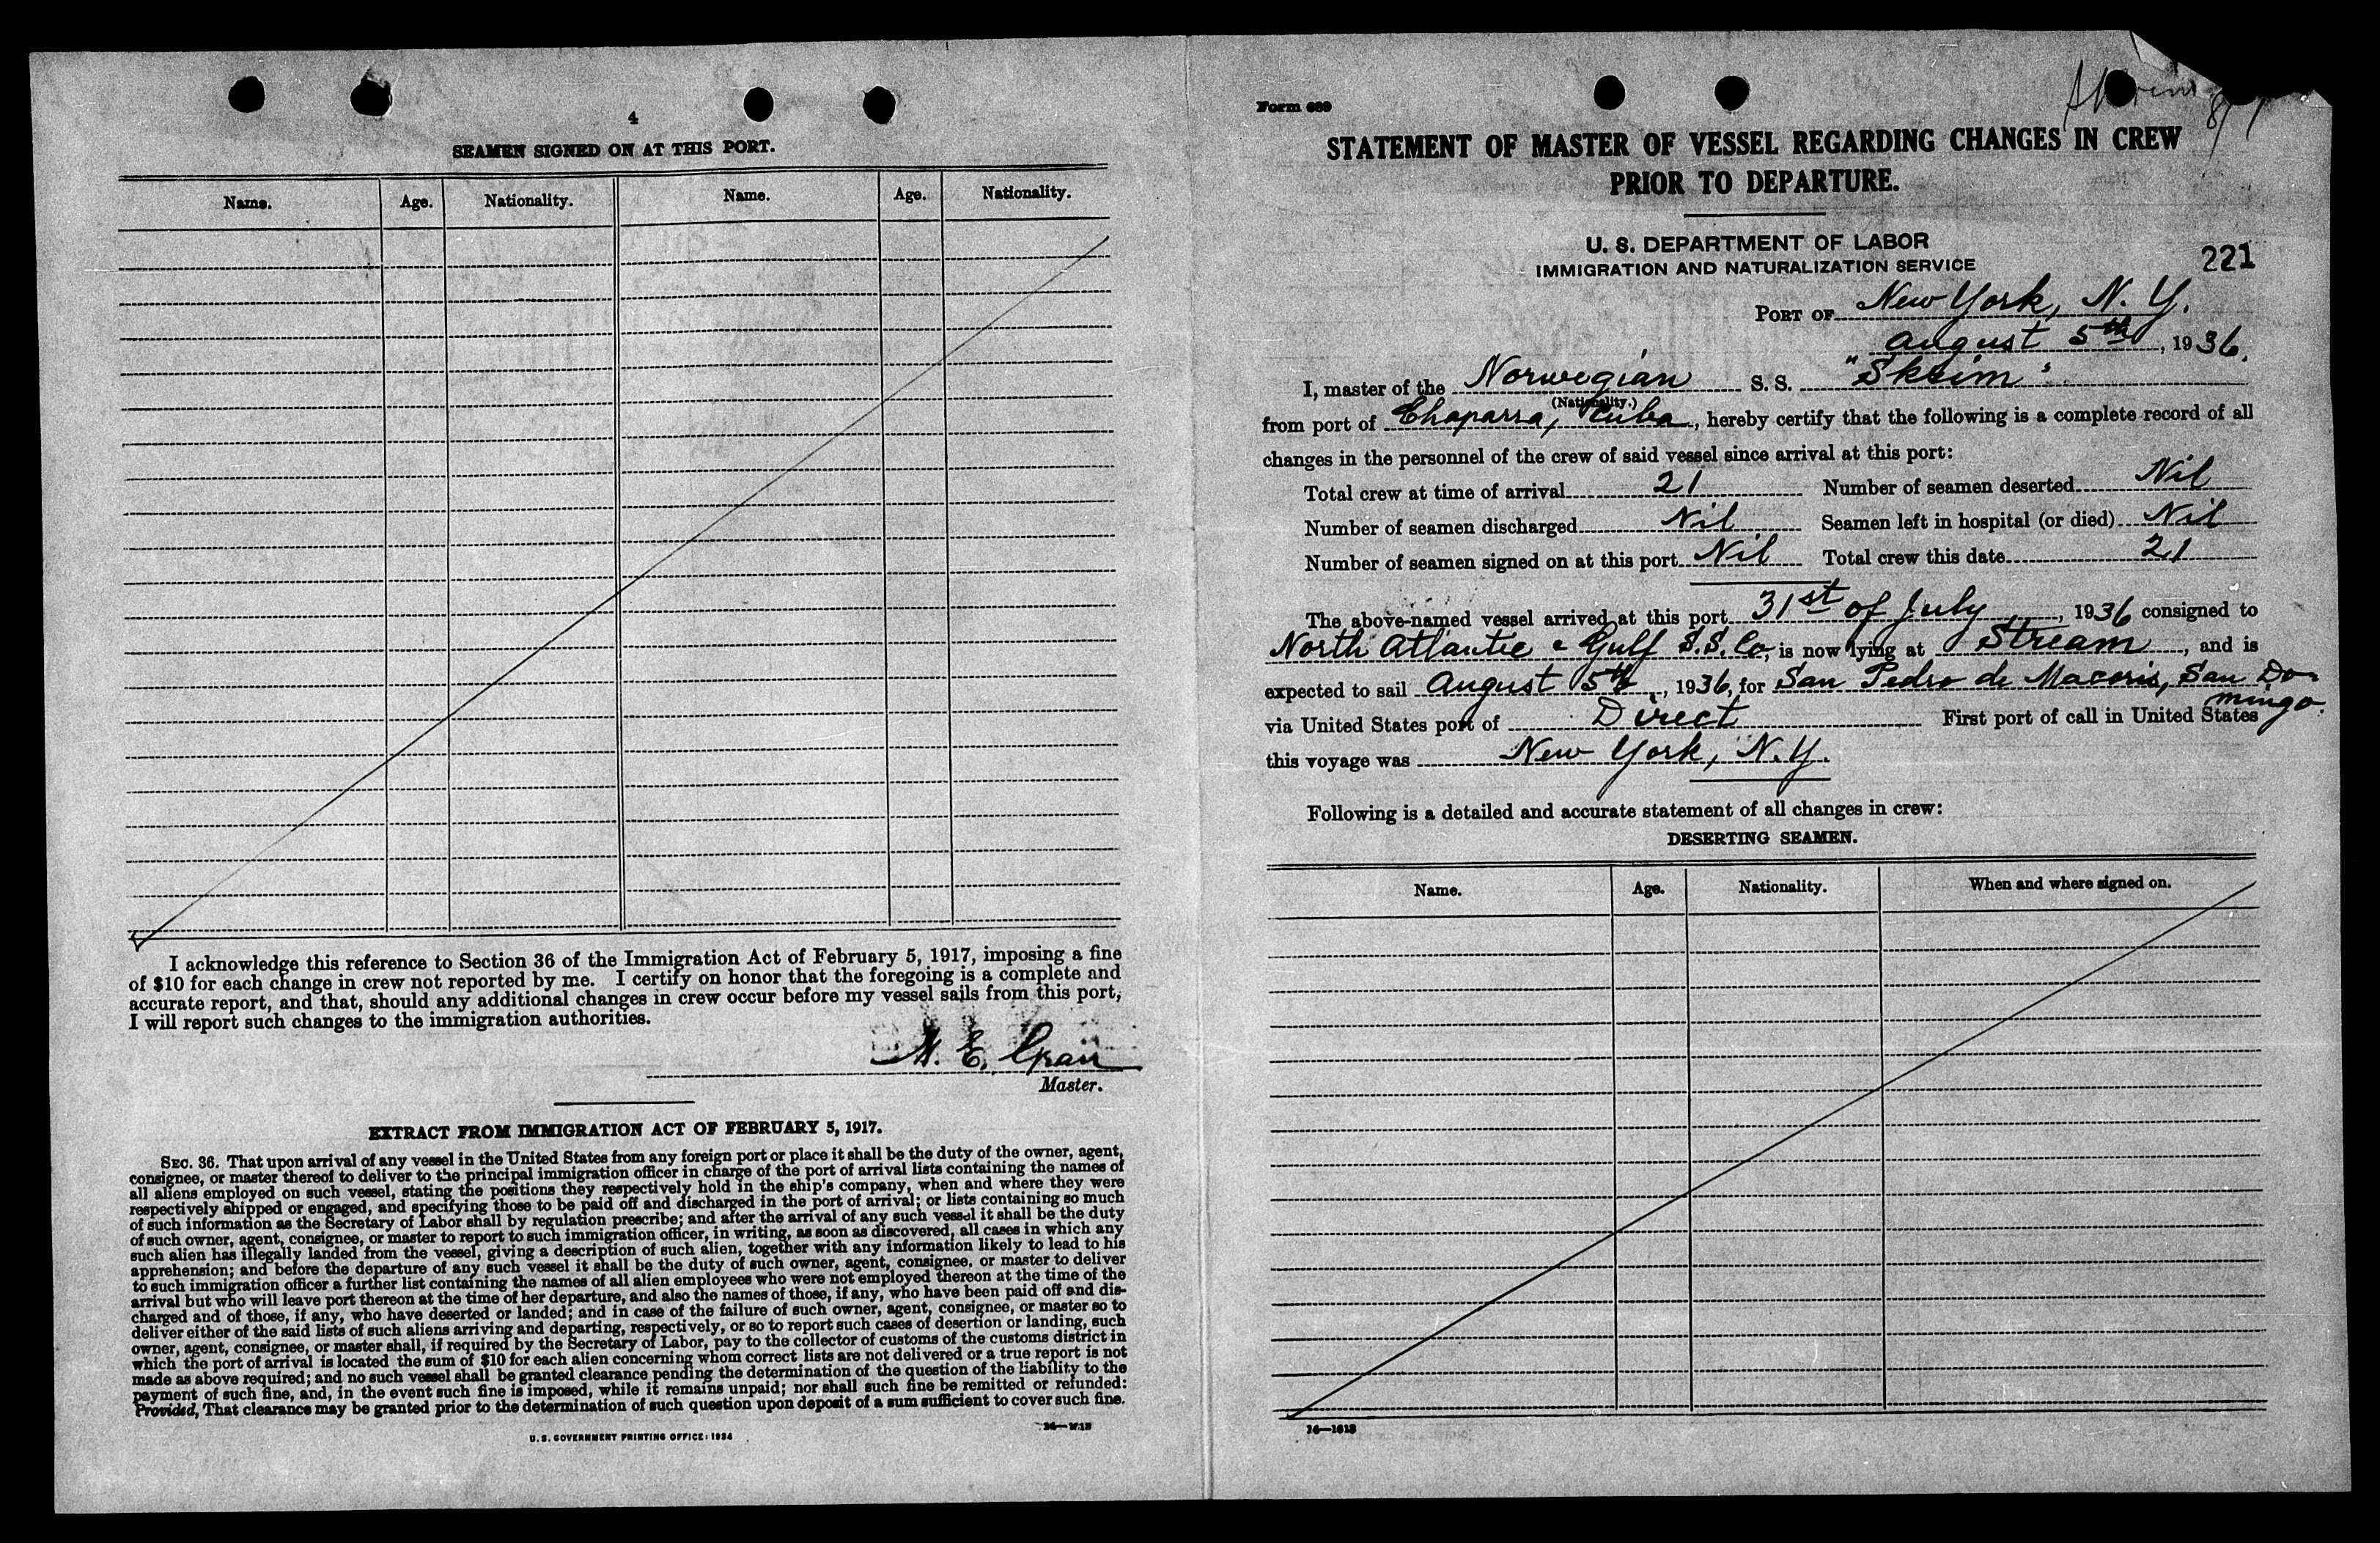 4
SEAMEN SIGNED ON AT THIS PORT.
Name. Age. Nationality. Name. Age. Nationality.
I acknowledge this reference to Section 36 of the Immigration Act of February 5, 1917, imposing a fine
of $10 for each change in crew not reported by me. I certify on honor that the foregoing is a complete and
accurate report, and that, should any additional changes in crew occur before my vessel sails from this port,
I will report such changes to the immigration authorities.
E.
Master.
EXTRACT FROM IMMIGRATION ACT OF FEBRUARY 5, 1917.
SEC. 36. That upon arrival of any vessel in the United States from any foreign port or place it shall be the duty of the owner, agent,
consignee, or master thereof to deliver to the principal immigration officer in charge of the port of arrival lists containing the names of
all aliens employed on such vessel, stating the positions they respectively hold in the ship's company, when and where they were
respectively shipped or engaged, and specifying those to be paid off and discharged in the port of arrival; or lists containing so much
of such information as the Secretary of Labor shall by regulation prescribe; and after the arrival of any such vessel it shall be the duty
of such owner, agent, consignee, or master to report to such immigration officer, in writing, as soon as discovered, all cases in which any
such alien has illegally landed from the vessel, giving a description of such alien, together with any information likely to lead to his
apprehension; and before the departure of any such vessel it shall be the duty of such owner, agent, consignee, or master to deliver
to such immigration officer a further list containing the names of all alien employees who were not employed thereon at the time of the
arrival but who will leave port thereon at the time of her departure, and also the names of those, if any, who have been paid off and dis-
charged and of those, if any, who have deserted or landed; and in case of the failure of such owner, agent, consignee, or master so to
deliver either of the said lists of such aliens arriving and departing, respectively, or so to report such cases of desertion or landing, such
owner, agent, consignee, or master shall, if required by the Secretary of Labor, pay to the collector of customs of the customs district in
which the port of arrival is located the sum of $10 for each alien concerning whom correct lists are not delivered or a true report is not
made as above required; and no such vessel shall be granted clearance pending the determination of the question of the liability to the
payment of such fine, and, in the event such fine is imposed, while it remains unpaid; nor shall such fine be remitted or refunded:
Provided, That clearance may be granted prior to the determination of such question upon deposit of a sum sufficient to cover such fine.
U.S. GOVERNMENT PRINTING OFFICE: 1934
Form 689
STATEMENT OF MASTER OF VESSEL REGARDING CHANGES IN CREW
PRIOR TO DEPARTURE.
U. S. DEPARTMENT OF LABOR
IMMIGRATION AND NATURALIZATION SERVICE
221
PORT OF New York, N. Y.
August 5th, 1936.
I, master of the Norwegian S. S. "Skrim"
(Nationality.)
from port of Chaparra, Cuba, hereby certify that the following is a complete record of all
changes in the personnel of the crew of said vessel since arrival at this port:
Total crew at time of arrival 21 Number of seamen deserted Nil
Number of seamen discharged Nil Seamen left in hospital (or died) Nil
Number of seamen signed on at this port Nil Total crew this date 21
The above-named vessel arrived at this port 31st of July, 1936 consigned to
North Atlantic & Gulf S.S. Co, is now lying at Stream, and is
expected to sail August 5th, 1936, for San Pedro de Macoris, San Do-
mingo.
via United States port of Direct First port of call in United States
this voyage was New York, N.Y.
Following is a detailed and accurate statement of all changes in crew:
DESERTING SEAMEN.
Name. Age. Nationality. When and where signed on.
14—1613